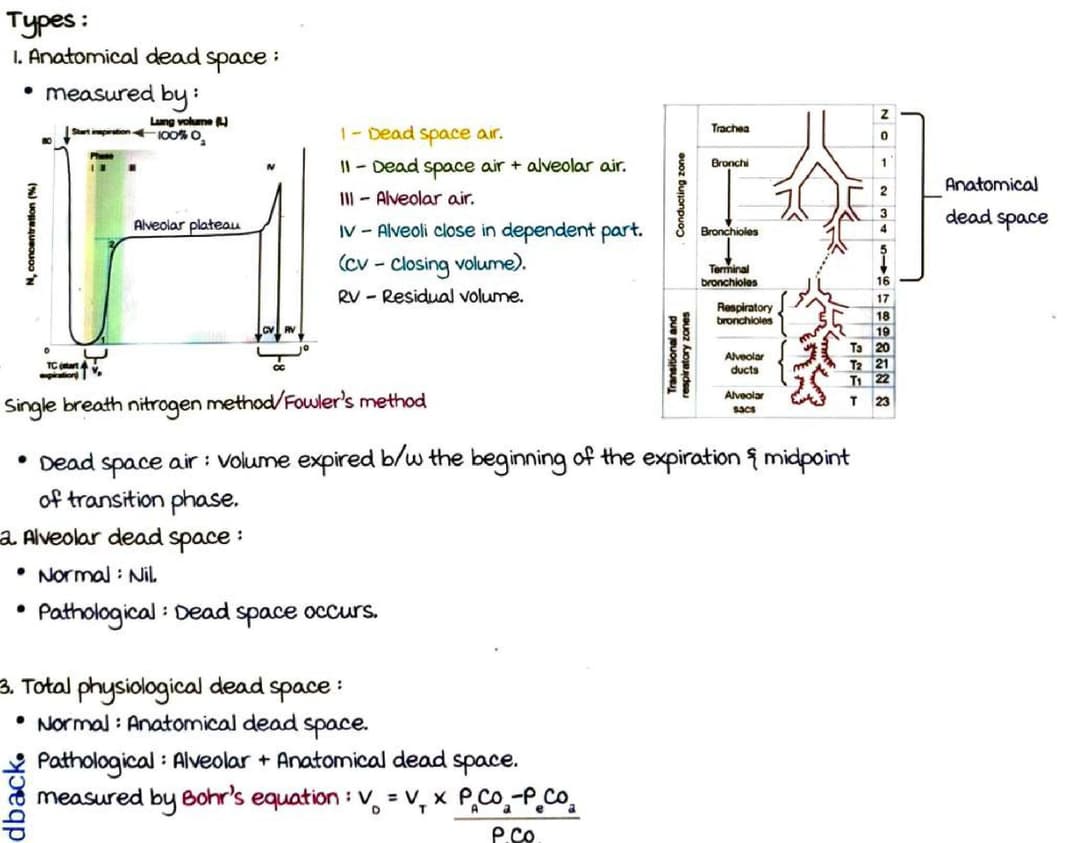 Types :
1. Anatomical dead space :
• measured by :
Lung volume (L)
Start inspiration
100% O2
80
Phase
I II III IV
N2 concentration (%)
Alveolar plateau
2
1
CV RV
0
0
TC (start expiration)
VD
CC
I - Dead space air.
II - Dead space air + alveolar air.
III - Alveolar air.
IV - Alveoli close in dependent part.
(CV - Closing volume).
RV - Residual volume.
Conducting zone
Transitional and respiratory zones
Trachea
Bronchi
Bronchioles
Terminal bronchioles
Respiratory bronchioles
Alveolar ducts
Alveolar sacs
Z
0
1
2
3
4
5
16
17
18
19
T3 20
T2 21
T1 22
T 23
Anatomical
dead space
Single breath nitrogen method/Fowler's method
• Dead space air : Volume expired b/w the beginning of the expiration & midpoint
of transition phase.
2. Alveolar dead space :
• Normal : Nil.
• Pathological : Dead space occurs.
3. Total physiological dead space :
• Normal : Anatomical dead space.
• Pathological : Alveolar + Anatomical dead space.
measured by Bohr's equation : VD = VT x PACO2-PeCO2
P CO
dback